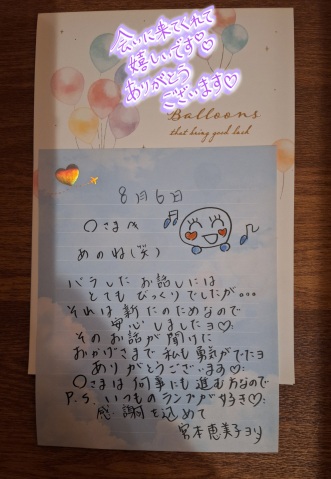 会いに来てくれて
嬉しいです♡♡
ありがとう
ございます♡
Balloons
that bring good luck
8月6日
〇さまへ
あのね(笑)
バラしたお話しには
とてもびっくりでしたが…
それは新たのためなので
安心しましたヨ♡
そのお話が聞けた
おかげさまで私も勇気がでたヨ
ありがとうございます♡
〇さまは何事にも進む方なので
P.S.いつものランプが好き♡
感謝を込めて
宮本恵美子より